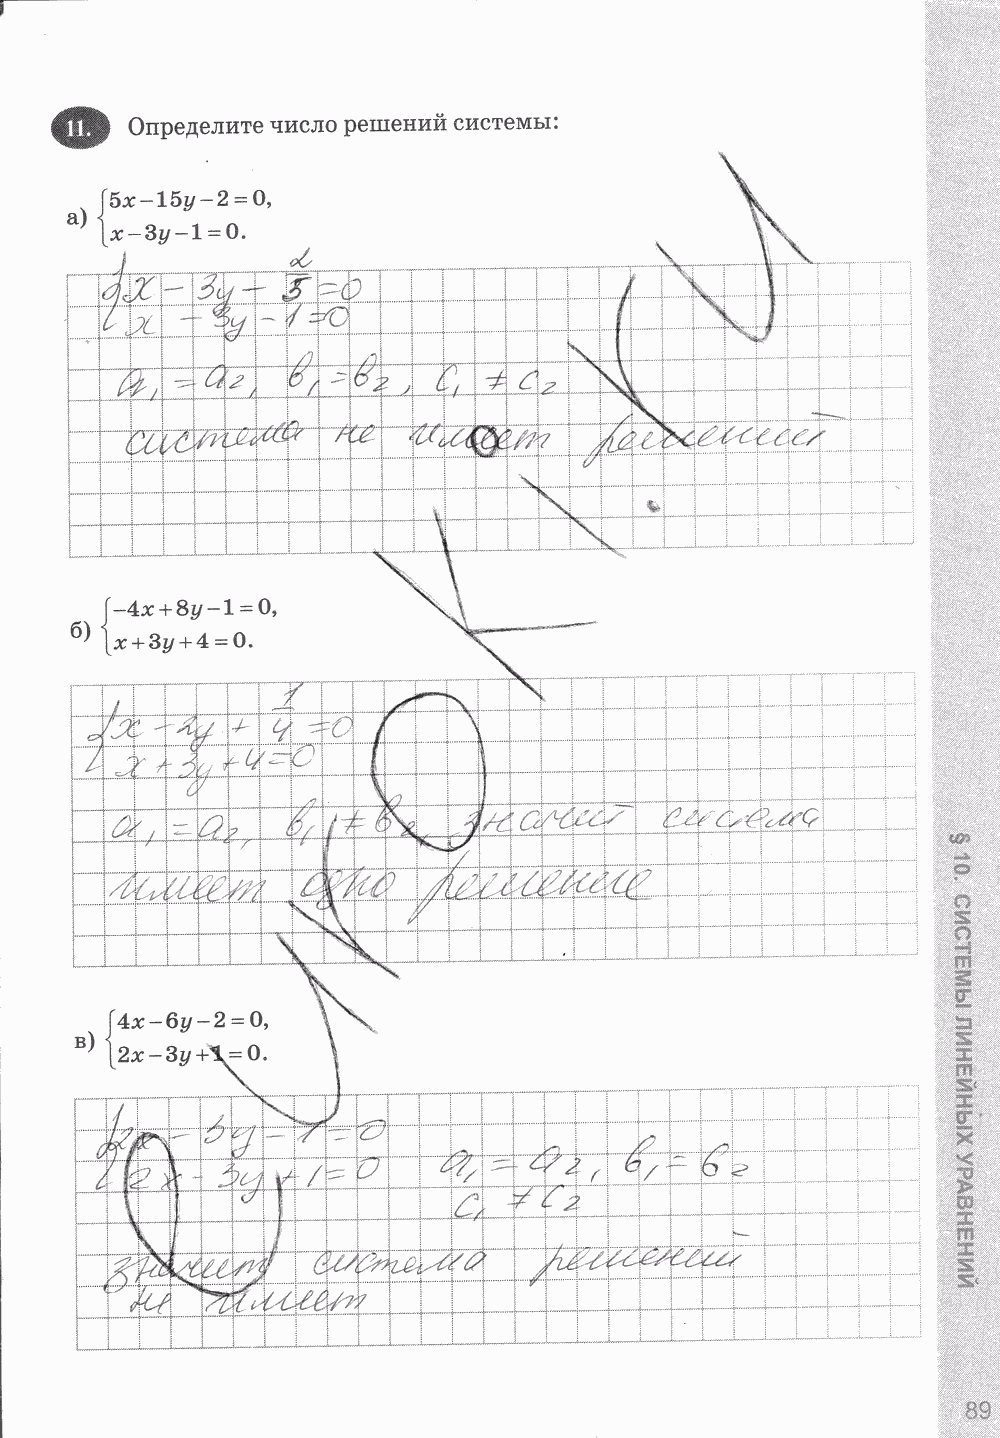 11. Определите число решений системы:
а) {5x−15y−2=0,
x−3y−1=0.
{x − 3y − 2/5 = 0
x − 3y − 1 = 0
a₁ = a₂, в₁ = в₂, c₁ ≠ c₂
система не имеет решений
б) {−4x+8y−1=0,
x+3y+4=0.
{x − 2y + 1/4 = 0
x + 3y + 4 = 0
a₁ = a₂, в₁ ≠ в₂, значит система
имеет одно решение
в) {4x−6y−2=0,
2x−3y+1=0.
{2x − 3y − 1 = 0
2x − 3y + 1 = 0 a₁ = a₂, в₁ = в₂
c₁ ≠ c₂
значит система решений
не имеет
§ 10. СИСТЕМЫ ЛИНЕЙНЫХ УРАВНЕНИЙ
89